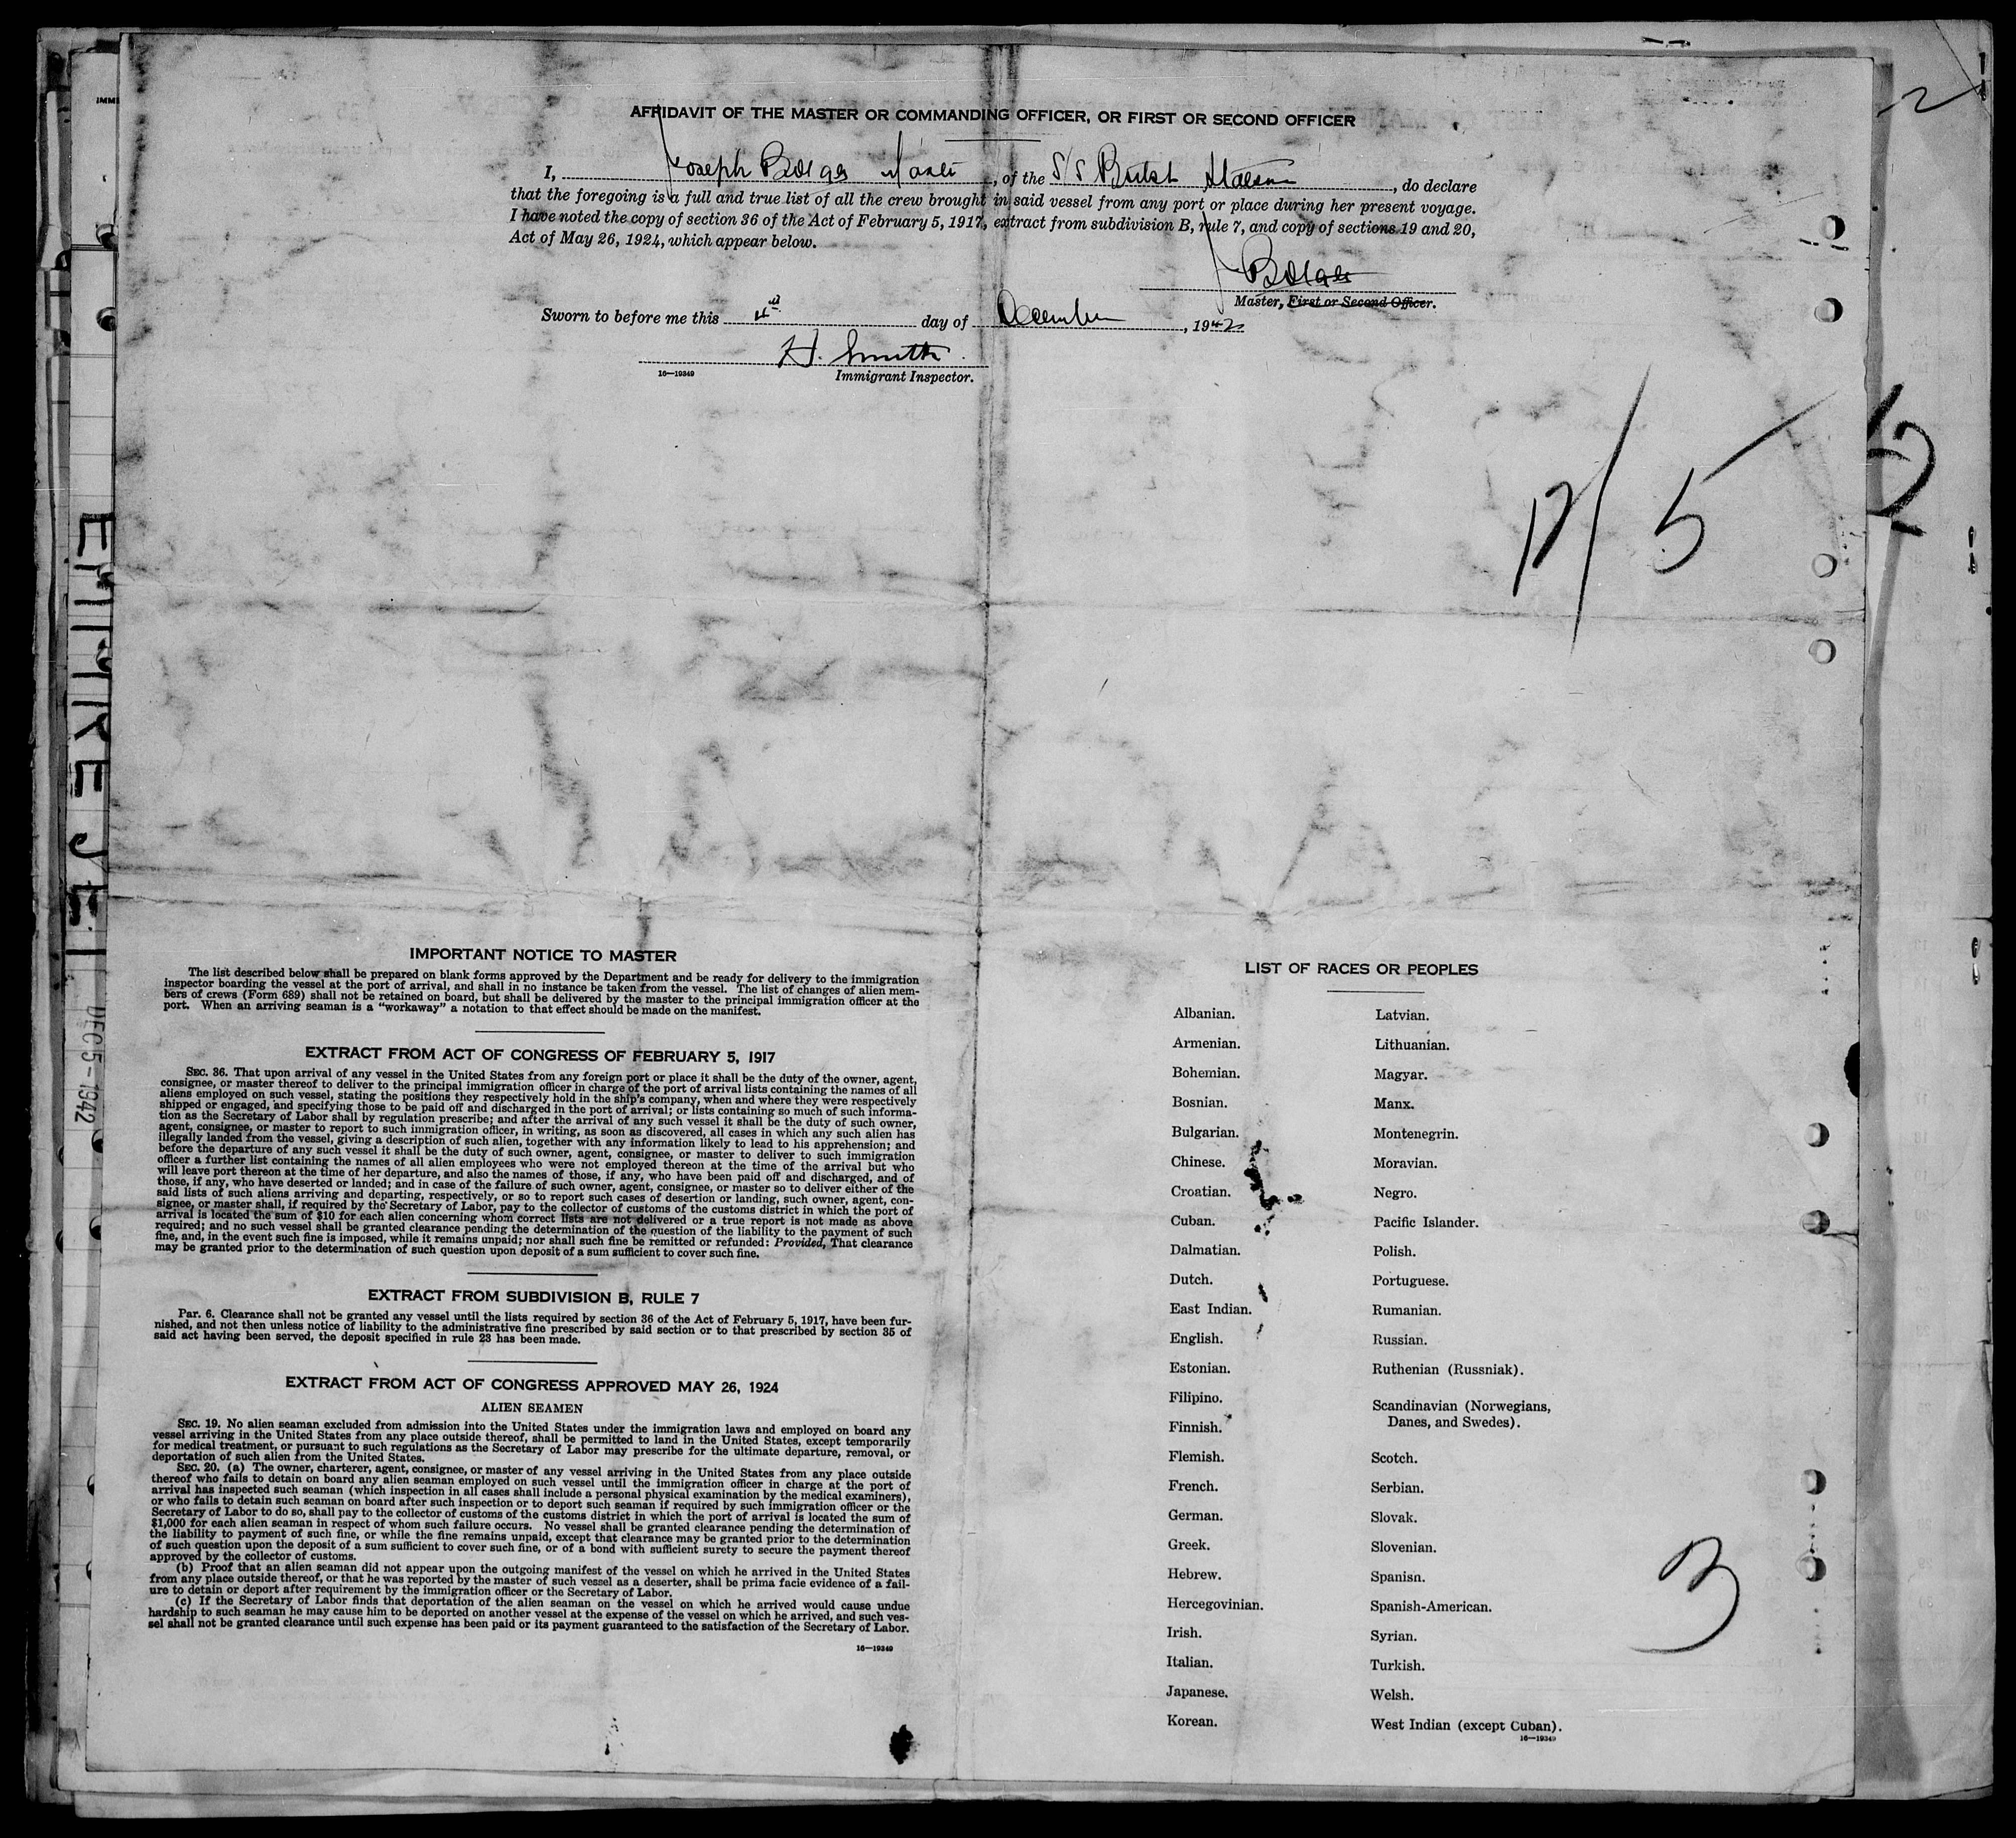 AFFIDAVIT OF THE MASTER OR COMMANDING OFFICER, OR FIRST OR SECOND OFFICER
I, Joseph , of the S/S , do declare
that the foregoing is a full and true list of all the crew brought in said vessel from any port or place during her present voyage.
I have noted the copy of section 36 of the Act of February 5, 1917, extract from subdivision B, rule 7, and copy of sections 19 and 20,
Act of May 26, 1924, which appear below.
Master, First or Second Officer.
Sworn to before me this 4th day of December, 1942
H. Smith
16—19349 Immigrant Inspector.
2
12
5
EMPIRE JET
DEC 5-1942
IMPORTANT NOTICE TO MASTER
The list described below shall be prepared on blank forms approved by the Department and be ready for delivery to the immigration
inspector boarding the vessel at the port of arrival, and shall in no instance be taken from the vessel. The list of changes of alien mem-
bers of crews (Form 689) shall not be retained on board, but shall be delivered by the master to the principal immigration officer at the
port. When an arriving seaman is a "workaway" a notation to that effect should be made on the manifest.
EXTRACT FROM ACT OF CONGRESS OF FEBRUARY 5, 1917
SEC. 36. That upon arrival of any vessel in the United States from any foreign port or place it shall be the duty of the owner, agent,
consignee, or master thereof to deliver to the principal immigration officer in charge of the port of arrival lists containing the names of all
aliens employed on such vessel, stating the positions they respectively hold in the ship's company, when and where they were respectively
shipped or engaged, and specifying those to be paid off and discharged in the port of arrival; or lists containing so much of such informa-
tion as the Secretary of Labor shall by regulation prescribe; and after the arrival of any such vessel it shall be the duty of such owner,
agent, consignee, or master to report to such immigration officer, in writing, as soon as discovered, all cases in which any such alien has
illegally landed from the vessel, giving a description of such alien, together with any information likely to lead to his apprehension; and
before the departure of any such vessel it shall be the duty of such owner, agent, consignee, or master to deliver to such immigration
officer a further list containing the names of all alien employees who were not employed thereon at the time of the arrival but who
will leave port thereon at the time of her departure, and also the names of those, if any, who have been paid off and discharged, and of
those, if any, who have deserted or landed; and in case of the failure of such owner, agent, consignee, or master so to deliver either of the
said lists of such aliens arriving and departing, respectively, or so to report such cases of desertion or landing, such owner, agent, con-
signee, or master shall, if required by the Secretary of Labor, pay to the collector of customs of the customs district in which the port of
arrival is located the sum of $10 for each alien concerning whom correct lists are not delivered or a true report is not made as above
required; and no such vessel shall be granted clearance pending the determination of the question of the liability to the payment of such
fine, and, in the event such fine is imposed, while it remains unpaid; nor shall such fine be remitted or refunded: Provided, That clearance
may be granted prior to the determination of such question upon deposit of a sum sufficient to cover such fine.
EXTRACT FROM SUBDIVISION B, RULE 7
Par. 6. Clearance shall not be granted any vessel until the lists required by section 36 of the Act of February 5, 1917, have been fur-
nished, and not then unless notice of liability to the administrative fine prescribed by said section or to that prescribed by section 35 of
said act having been served, the deposit specified in rule 23 has been made.
EXTRACT FROM ACT OF CONGRESS APPROVED MAY 26, 1924
ALIEN SEAMEN
SEC. 19. No alien seaman excluded from admission into the United States under the immigration laws and employed on board any
vessel arriving in the United States from any place outside thereof, shall be permitted to land in the United States, except temporarily
for medical treatment, or pursuant to such regulations as the Secretary of Labor may prescribe for the ultimate departure, removal, or
deportation of such alien from the United States.
SEC. 20. (a) The owner, charterer, agent, consignee, or master of any vessel arriving in the United States from any place outside
thereof who fails to detain on board any alien seaman employed on such vessel until the immigration officer in charge at the port of
arrival has inspected such seaman (which inspection in all cases shall include a personal physical examination by the medical examiners),
or who fails to detain such seaman on board after such inspection or to deport such seaman if required by such immigration officer or the
Secretary of Labor to do so, shall pay to the collector of customs of the customs district in which the port of arrival is located the sum of
$1,000 for each alien seaman in respect of whom such failure occurs. No vessel shall be granted clearance pending the determination of
the liability to payment of such fine, or while the fine remains unpaid, except that clearance may be granted prior to the determination
of such question upon the deposit of a sum sufficient to cover such fine, or of a bond with sufficient surety to secure the payment thereof
approved by the collector of customs.
(b) Proof that an alien seaman did not appear upon the outgoing manifest of the vessel on which he arrived in the United States
from any place outside thereof, or that he was reported by the master of such vessel as a deserter, shall be prima facie evidence of a fail-
ure to detain or deport after requirement by the immigration officer or the Secretary of Labor.
(c) If the Secretary of Labor finds that deportation of the alien seaman on the vessel on which he arrived would cause undue
hardship to such seaman he may cause him to be deported on another vessel at the expense of the vessel on which he arrived, and such ves-
sel shall not be granted clearance until such expense has been paid or its payment guaranteed to the satisfaction of the Secretary of Labor.
16—19349
LIST OF RACES OR PEOPLES
Albanian.
Armenian.
Bohemian.
Bosnian.
Bulgarian.
Chinese.
Croatian.
Cuban.
Dalmatian.
Dutch.
East Indian.
English.
Estonian.
Filipino.
Finnish.
Flemish.
French.
German.
Greek.
Hebrew.
Hercegovinian.
Irish.
Italian.
Japanese.
Korean.
Latvian.
Lithuanian.
Magyar.
Manx.
Montenegrin.
Moravian.
Negro.
Pacific Islander.
Polish.
Portuguese.
Rumanian.
Russian.
Ruthenian (Russniak).
Scandinavian (Norwegians,
Danes, and Swedes).
Scotch.
Serbian.
Slovak.
Slovenian.
Spanish.
Spanish-American.
Syrian.
Turkish.
Welsh.
West Indian (except Cuban).
16—19349
3